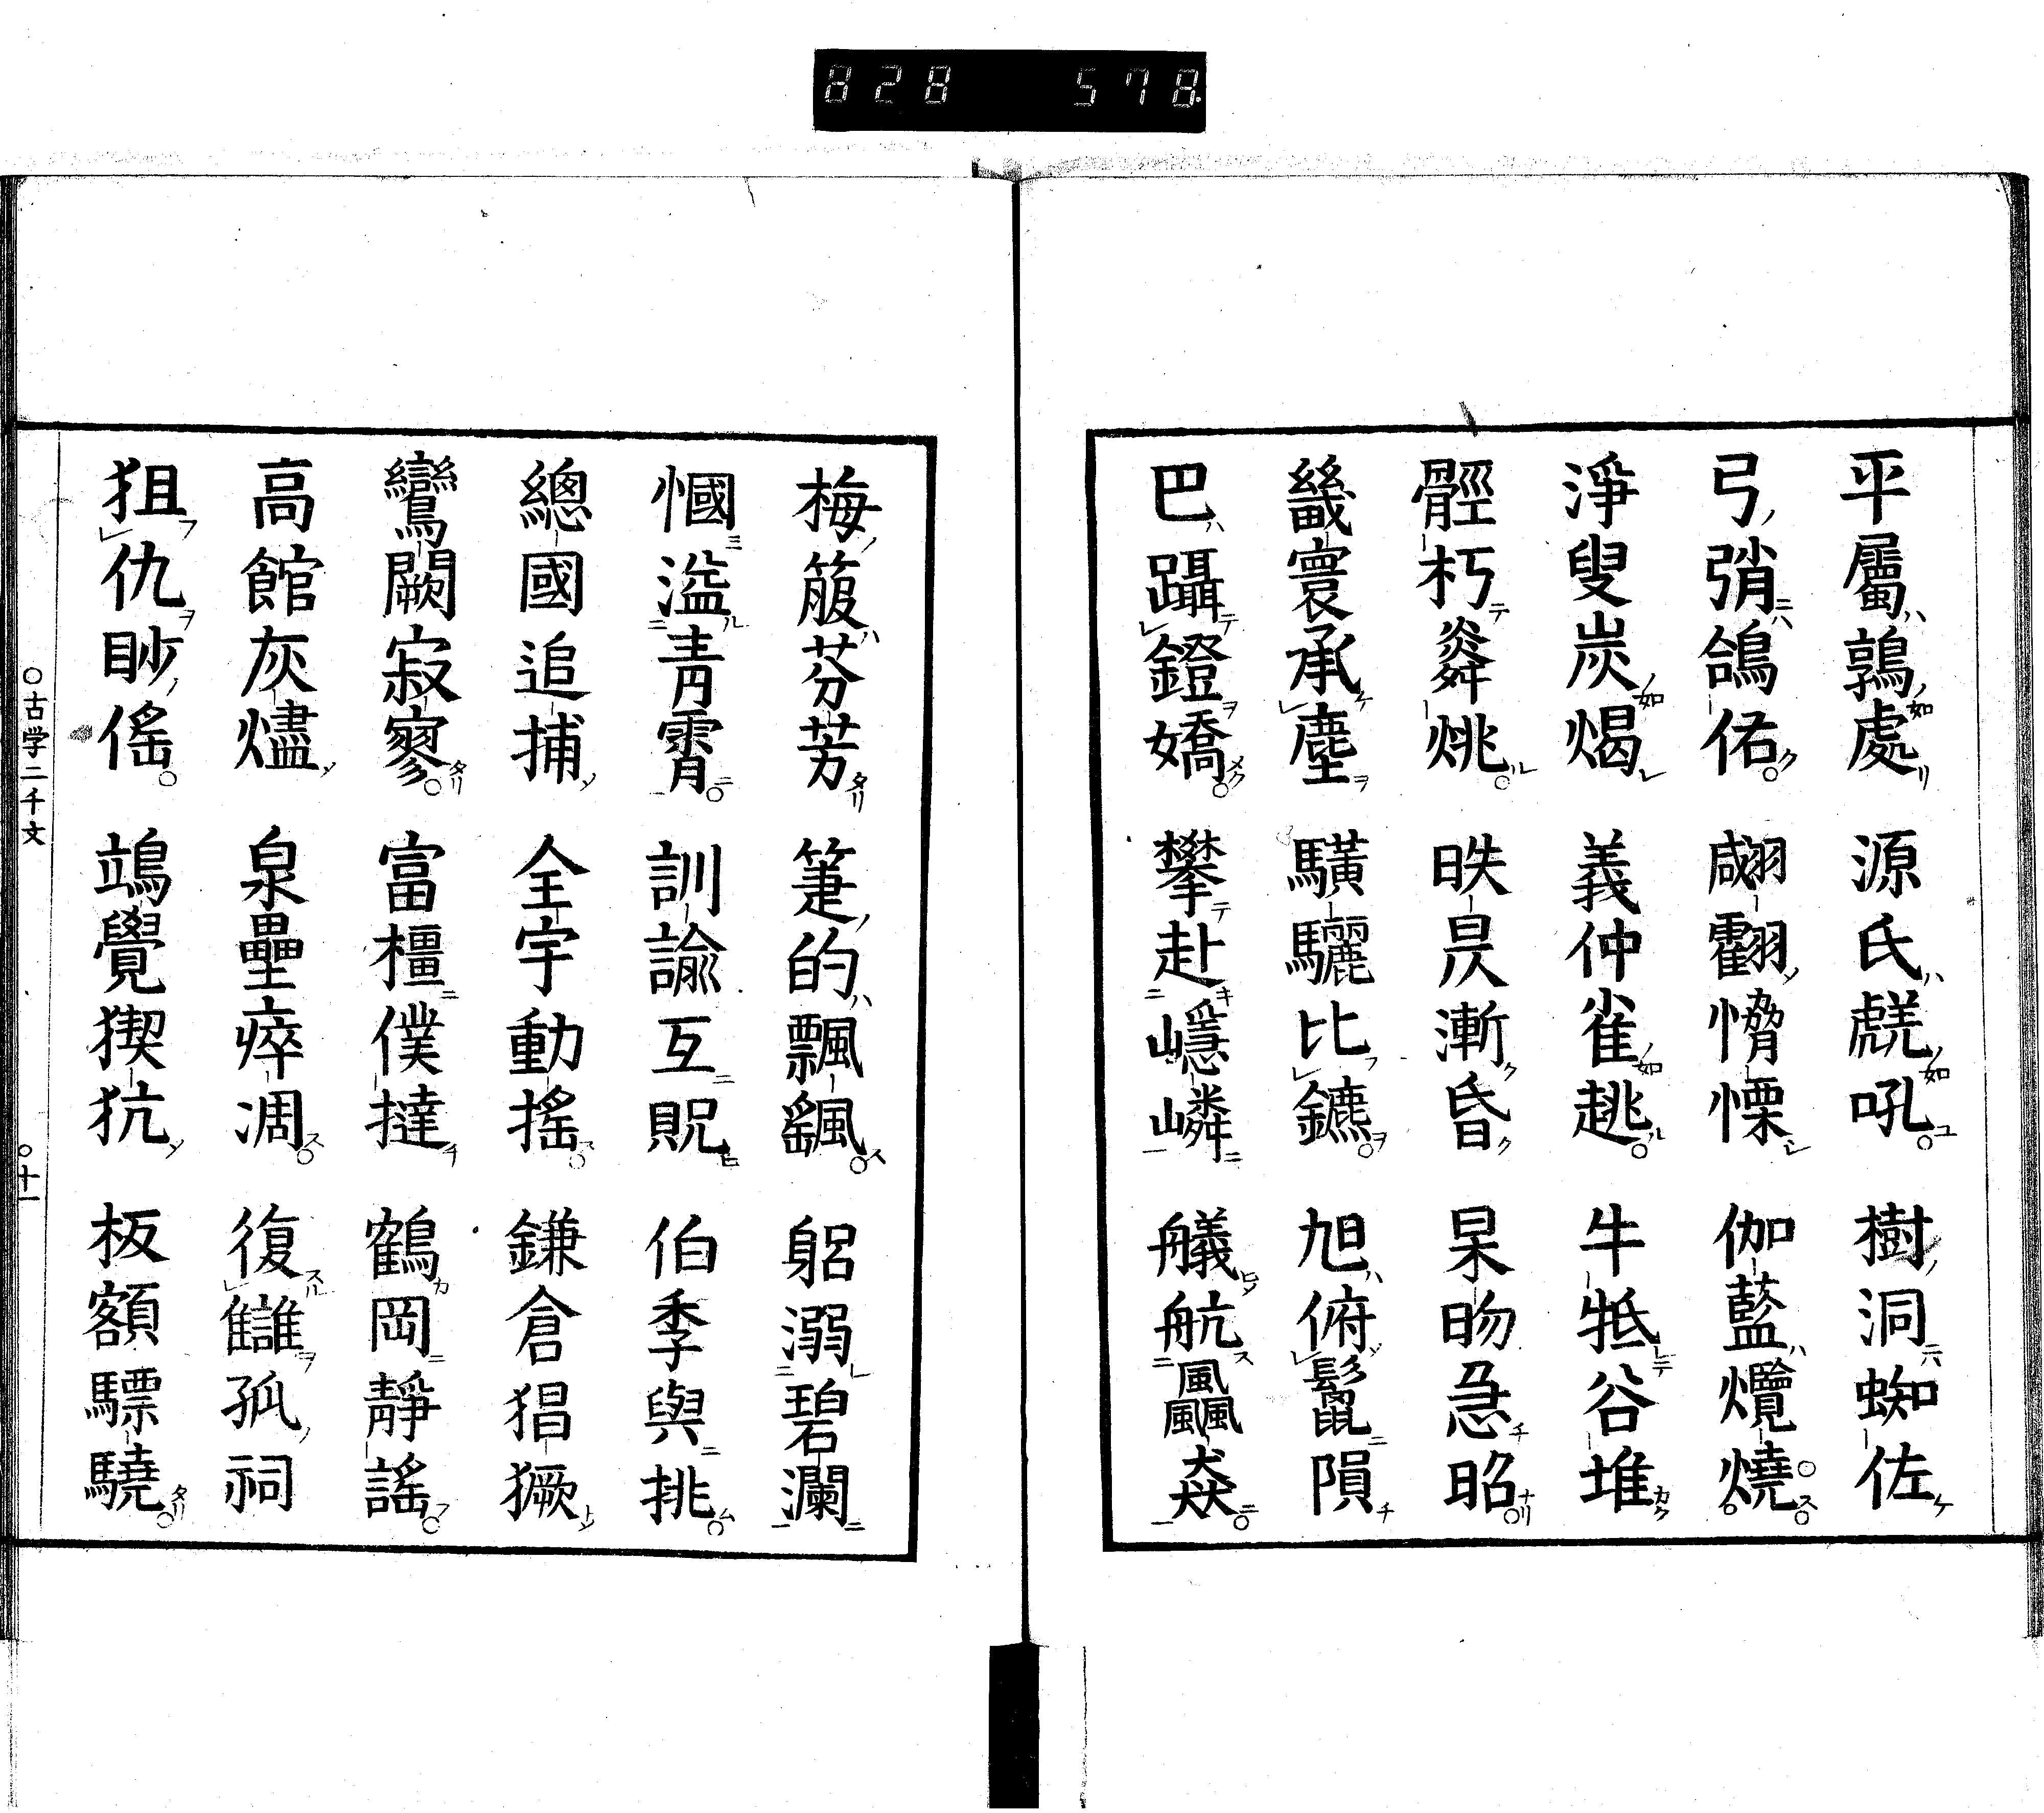 828 578
平屬鶉處 源氏虓吼 樹洞蜘佐
弓弰鴿佑 翩翻憎慄 伽藍爁燒
淨叟炭煬 義仲雀趒 牛牴谷堆
脛朽粦烑 昳昃漸昏 杲昒急昭
畿寰承塵 驥驪比鑣 旭俯鬣隕
巴躡鐙嬌 攀赴嶾嶙 艤航飍猋
梅箙芬芳 箑的飄颻 躳溺碧瀾
慖溢靑霄 訓諭互貺 伯季與挑
總國追捕 全宇動搖 鎌倉猖獗
鸞闕寂寥 富橿僕撻 鶴岡靜謠
高館灰燼 泉壘瘁凋 復讎孤祠
狙仇眇傜 鴗覺猰犺 板額驃驍
○古学二千文 ○十一